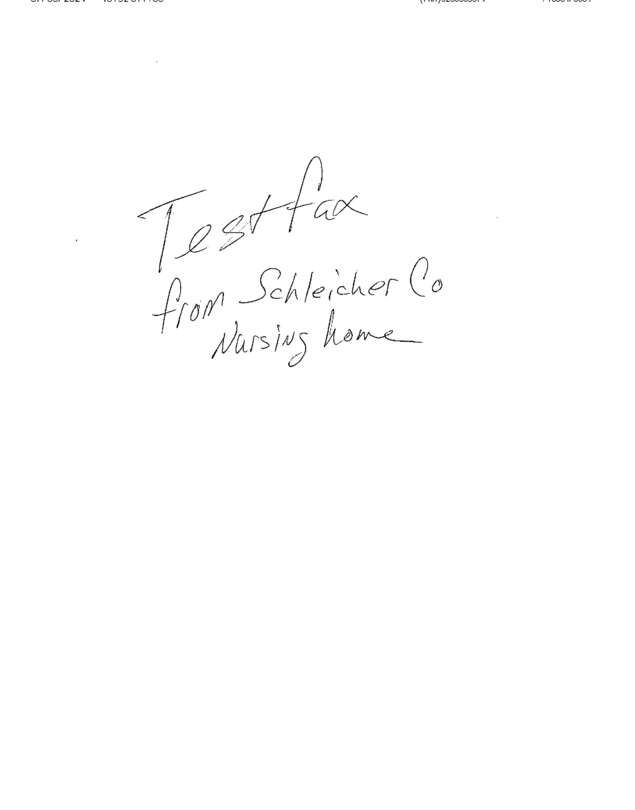 Test fax
from Schleicher Co
Nursing home